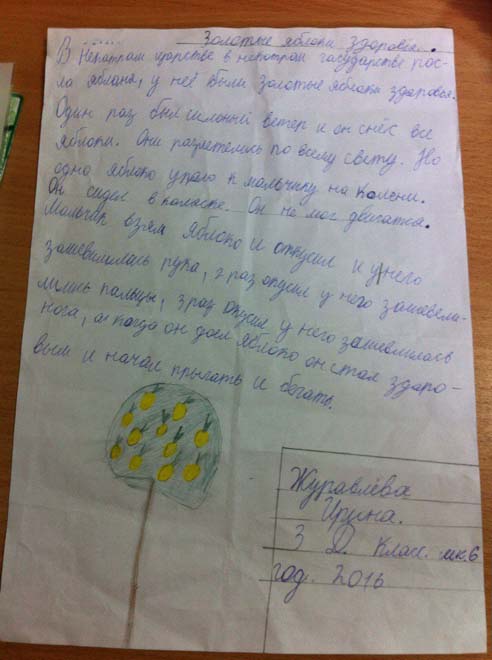 Золотые яблоки здоровья...
В некотрам царстве в некотрам государстве рос-
ла яблоня, у неё были золотые яблоки здоровья.
Один раз был сильный ветер и он снёс все
яблоки. Они разлетелись по всему свету. Но
одно яблоко упало к мальчику на колени.
Он сидел в каляске. Он не мог двигатса.
Мальчик взял яблоко и откусил и у него
зашевилилась рука, 2 раз окусил у него зашевели-
лись пальцы, 3 раз окусил у него зашевилилась
нога, а когда он доел яблоко он стал здоро-
вым и начал прыгать и бегать.
Журавлёва
Ирина.
3 Д. класс. шк.6
год. 2016